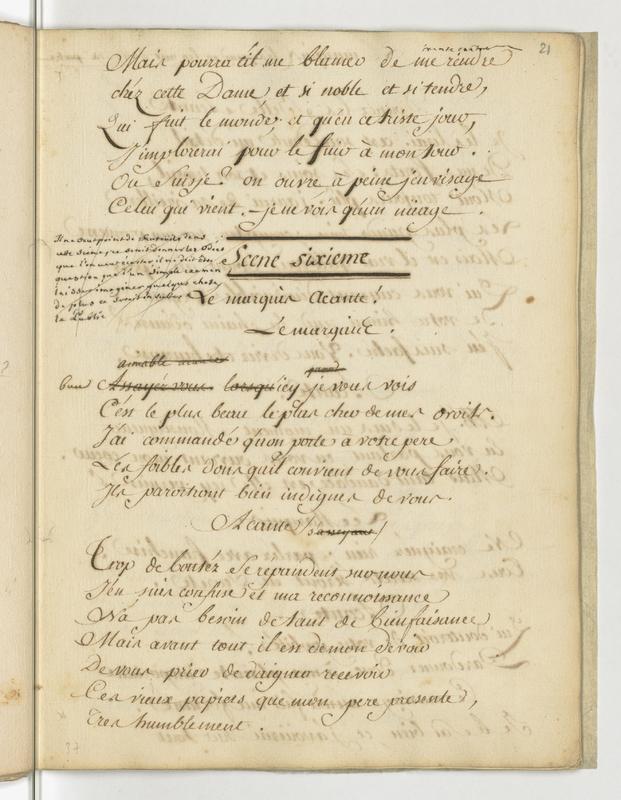 21
Mais pourra t'il me blamer de me rendre
chéz cette Dame, et si noble et si tendre,
Qui fuit le monde, et qu'en ce triste jour,
J'implorerai pour le fuir à mon tour.
Ou suis je? on ouvre à peine j'envisage
Celui qui vient. je ne vois qu'un nuage.
Scene sixieme
Le marquis Acante!
Le marquis.
aimable
lorsqu'icy je vous vois
C'est le plus beau le plus cher de mes droits.
J'ai commandé qu'on porte à votre pere
Les foibles dons qu'il convient de vous faire.
Ils paroitront bien indignes de vous.
Acante s'asseyant
Trop de bontéz se repandent sur nous
J'en suis confuse et ma reconnoissance
N'a pas besoin de tant de bienfaisance
Mais avant tout il est de mon devoir
De vous prier de daigner recevoir
Ces vieux papiers que mon pere presente,
Tres humblement.
37